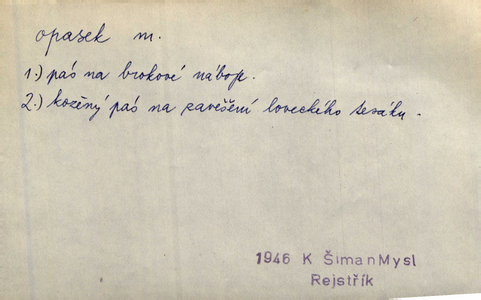 opasek m.
1.) pás na brokové náboje.
2.) kožený pás na zavěšení loveckého tesáku.
1946 K ŠimanMysl
Rejstřík